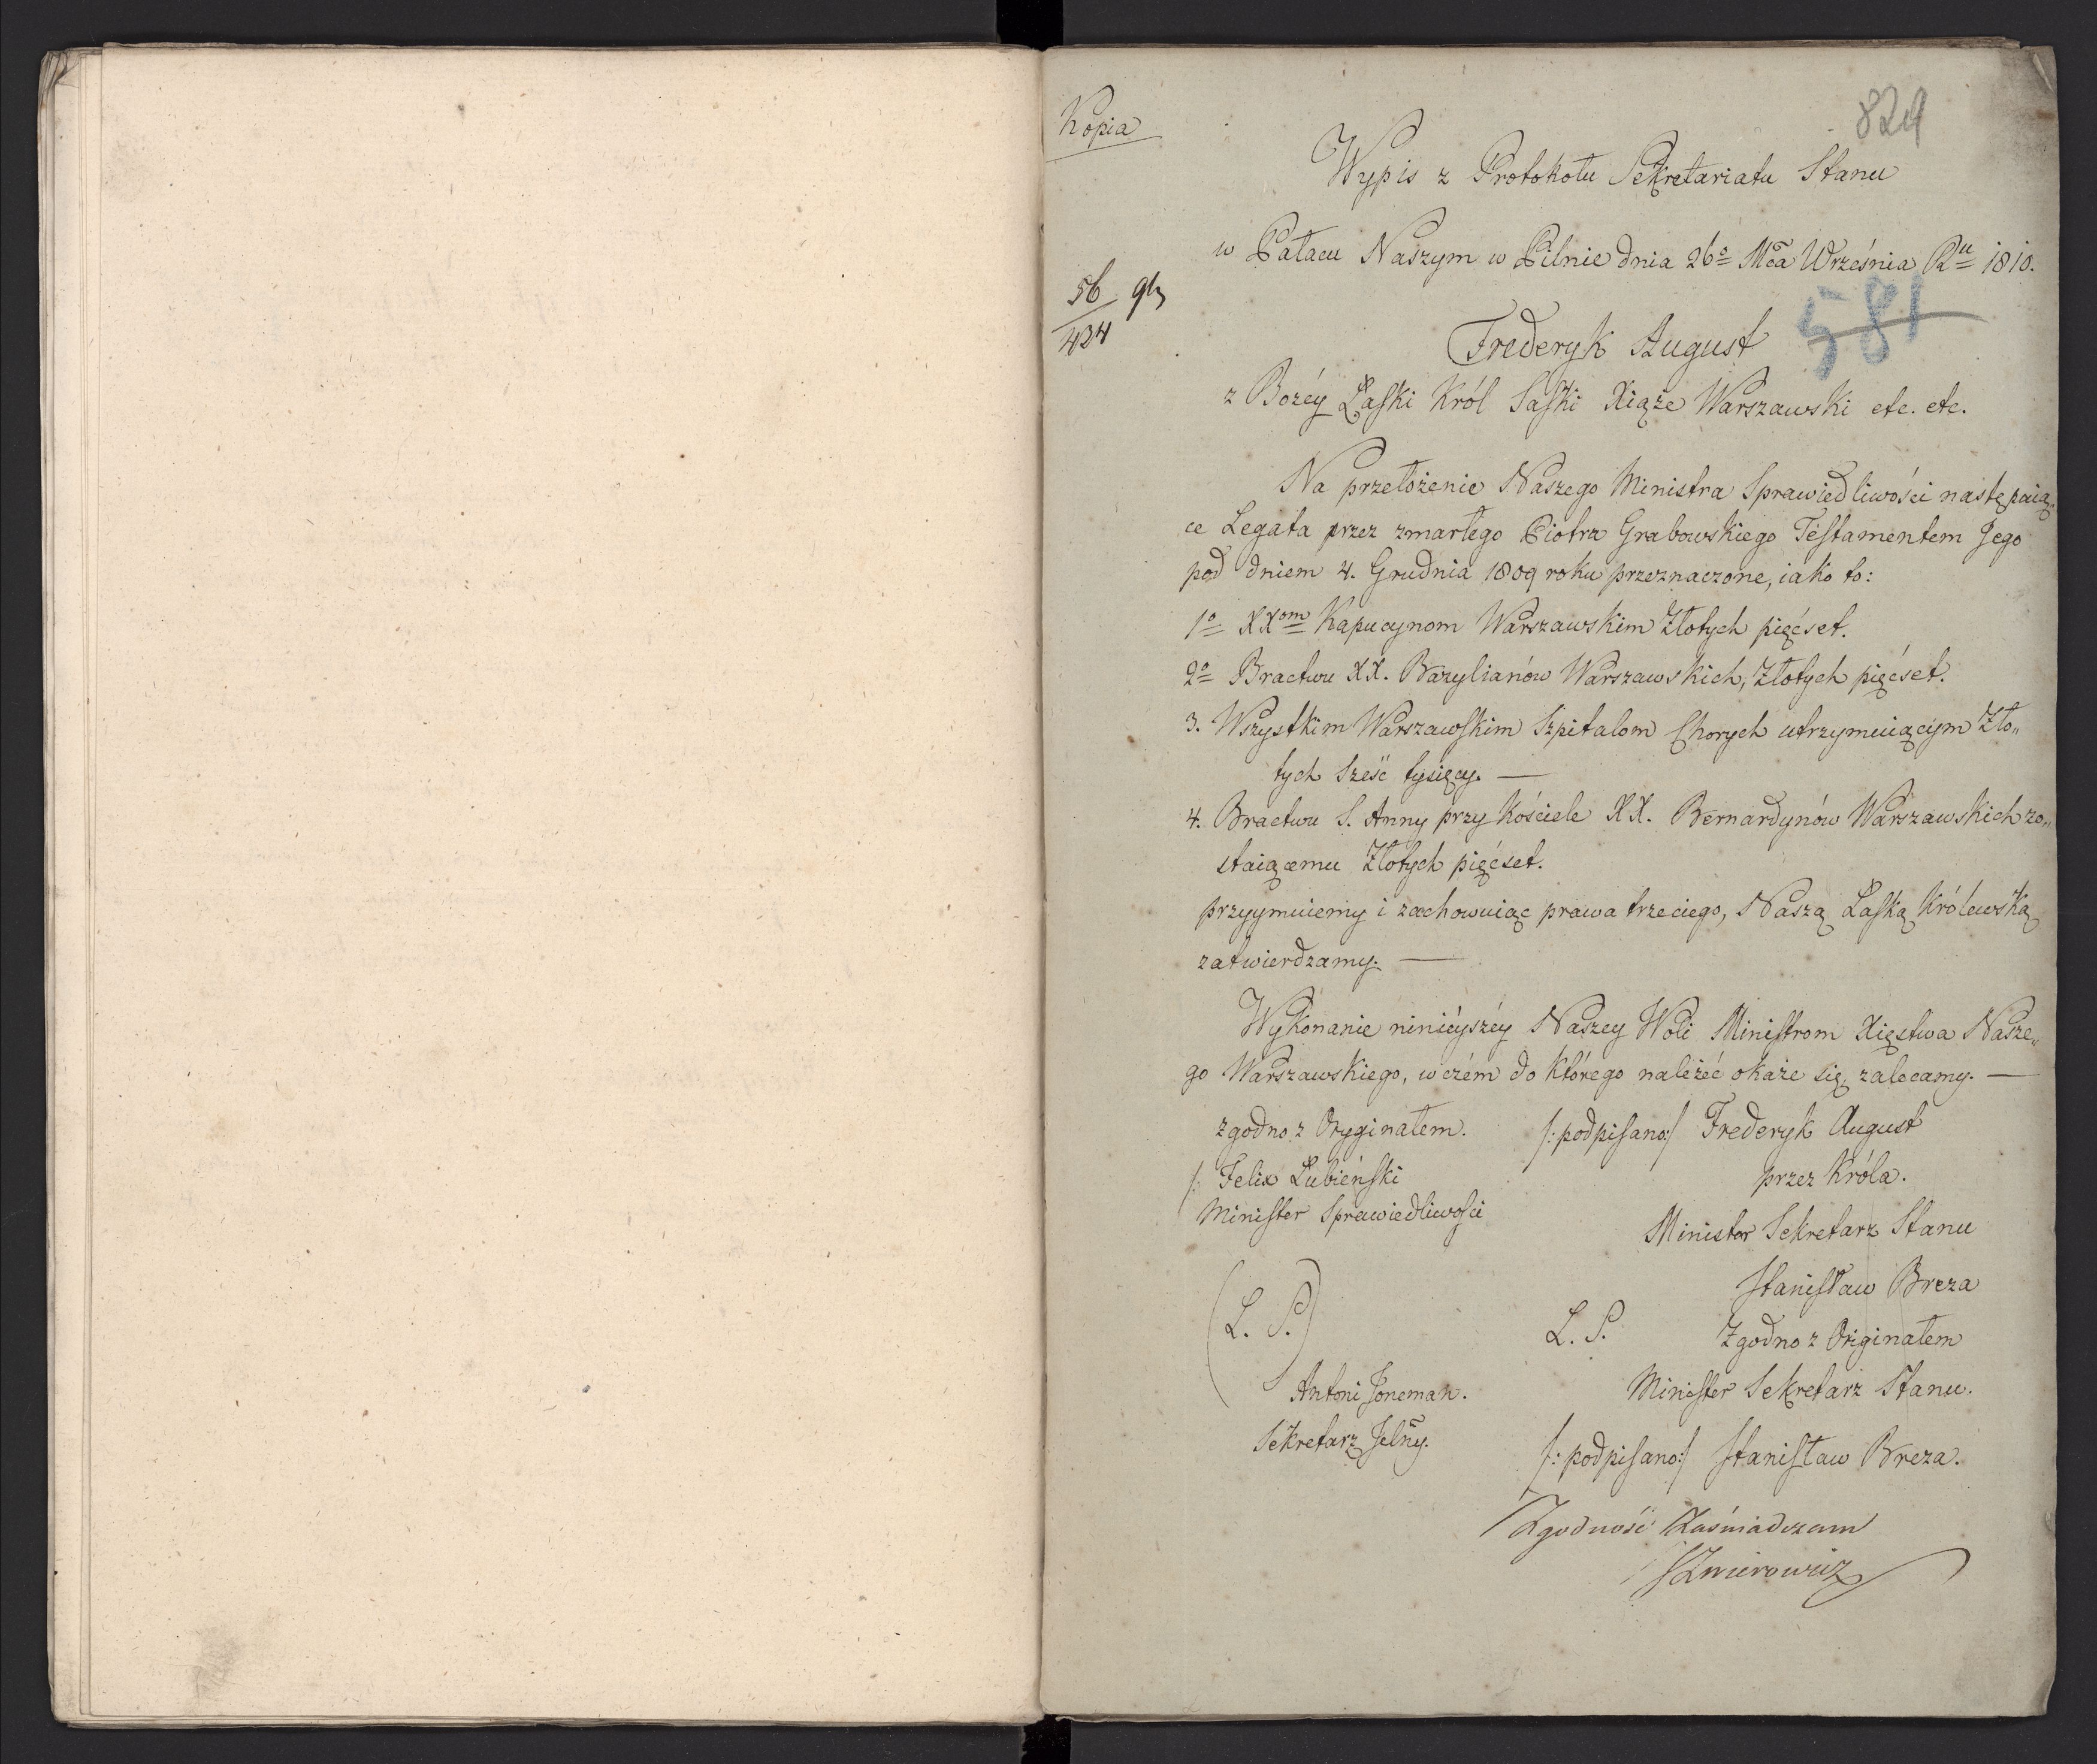 Kopia
829
Wypis z Protokołu Sekretariatu Stanu
w Pałacu Naszym w Pilnie dnia 26º Mca Września Ru 1810.
56
434
581
Frederyk August
z Bożéy Łaski Król Saski Xiąże Warszawski etc. etc.
Na przełożenie Naszego Ministra Sprawiedliwości następuią,,
ce Legata przez zmarłego Piotra Grabowskiego Testamentem Jego
pod dniem 4. Grudnia 1809 roku przeznaczone, iako to:
1º XXom Kapucynom Warszawskim Złotych pięćset.
2º Bractwu XX. Bazylianów Warszawskich, Złotych pięćset.
3. Wszystkim Warszawskim Szpitalom Chorych utrzymuiącym Zło,,
tych sześć tysięcy. —
4. Bractwu S. Anny przy Kościele XX. Bernardynów Warszawskich zo,,
staiącemu Złotych pięćset.
przyymuiemy i zachowuiąc prawa trzeciego, Naszą Łaską Królewską
zatwierdzamy. —
Wykonanie ninieyszéy Naszey Woli Ministrom Xięstwa Nasze,,
go Warszawskiego, w czém do którego należéć okaże się, zalecamy. —
zgodno z Oryginałem. /: podpisano :/ Frederyk August
/: Felix Łubieński przez Króla.
Minister Sprawiedliwości
Minister Sekretarz Stanu
Stanisław Breza
(L. S.) L. S. Zgodno z Originałem
Antoni Joneman. Minister Sekretarz Stanu.
Sekretarz Jelny.
/: podpisano :/ Stanisław Breza.
Zgodność Zaświadczam